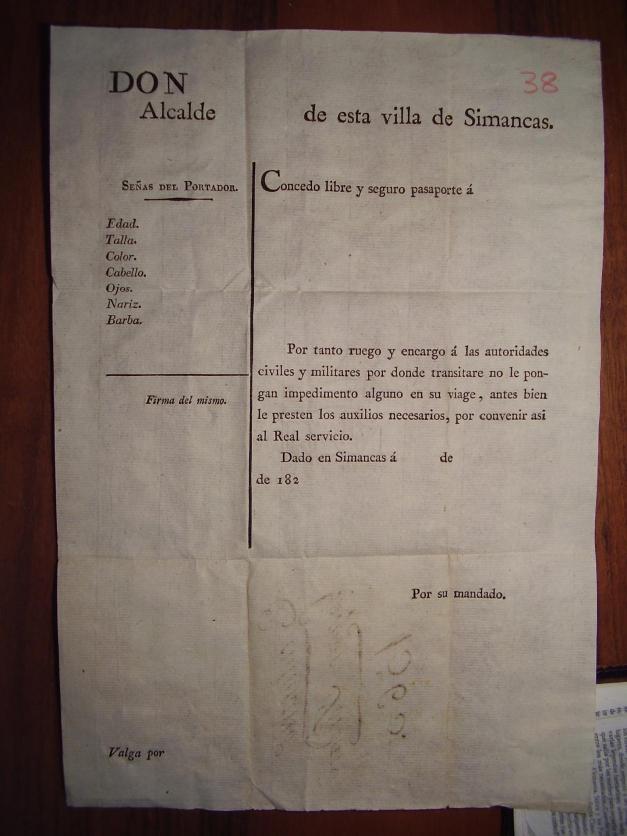 38
DON
Alcalde de esta villa de Simancas.
SEÑAS DEL PORTADOR.
Edad.
Talla.
Color.
Cabello.
Ojos.
Nariz.
Barba.
Firma del mismo.
Concedo libre y seguro pasaporte á
Por tanto ruego y encargo á las autoridades
civiles y militares por donde transitare no le pon-
gan impedimento alguno en su viage, antes bien
le presten los auxilios necesarios, por convenir asi
al Real servicio.
Dado en Simancas á de
de 182
Por su mandado.
Valga por